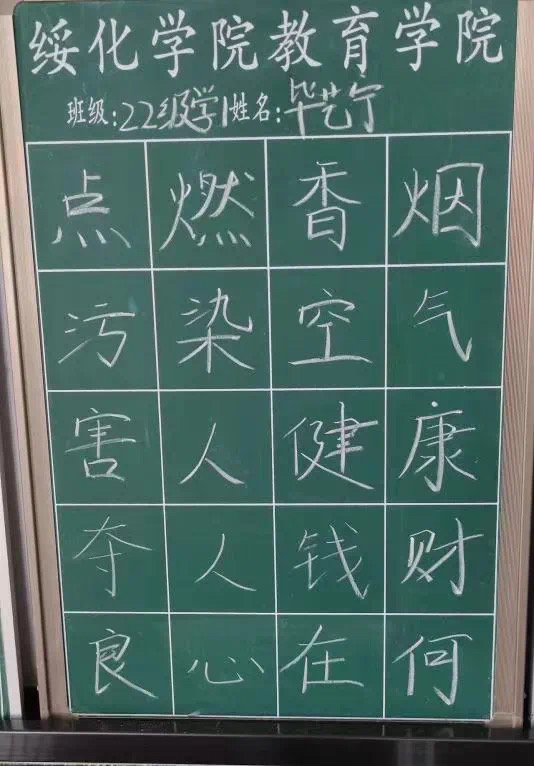 绥化学院教育学院
班级:22级学1姓名:毕艺宁
点燃香烟
污染空气
害人健康
夺人钱财
良心在何